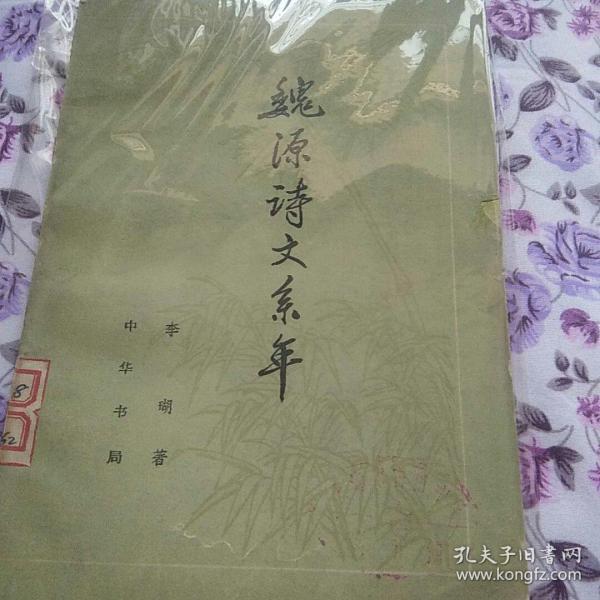 魏源诗文系年
李瑚著
中华书局
8
62
孔夫子旧书网
www.kongfz.com